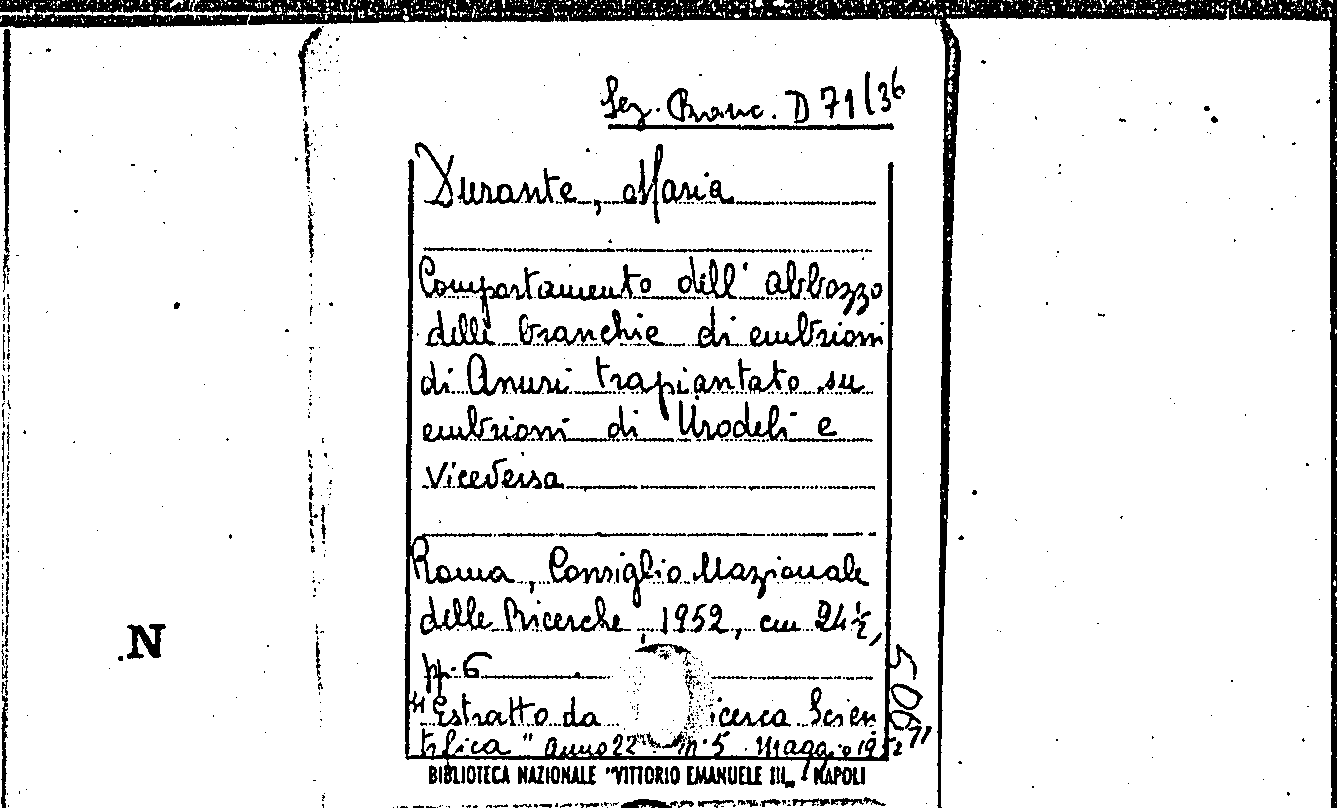 Sez. Branc. D 71/36
Durante, Maria
Comportamento dell' abbozzo
delle branchie di embrioni
di Anuri trapiantato su
embrioni di Urodeli e
viceversa
Roma, Consiglio Nazionale
delle Ricerche, 1952, cm 24½,
pp. 6
"Estratto da icerca Scien
tifica" anno 22 n. 5 Maggio 1952"
905
N
BIBLIOTECA NAZIONALE "VITTORIO EMANUELE III„ - NAPOLI